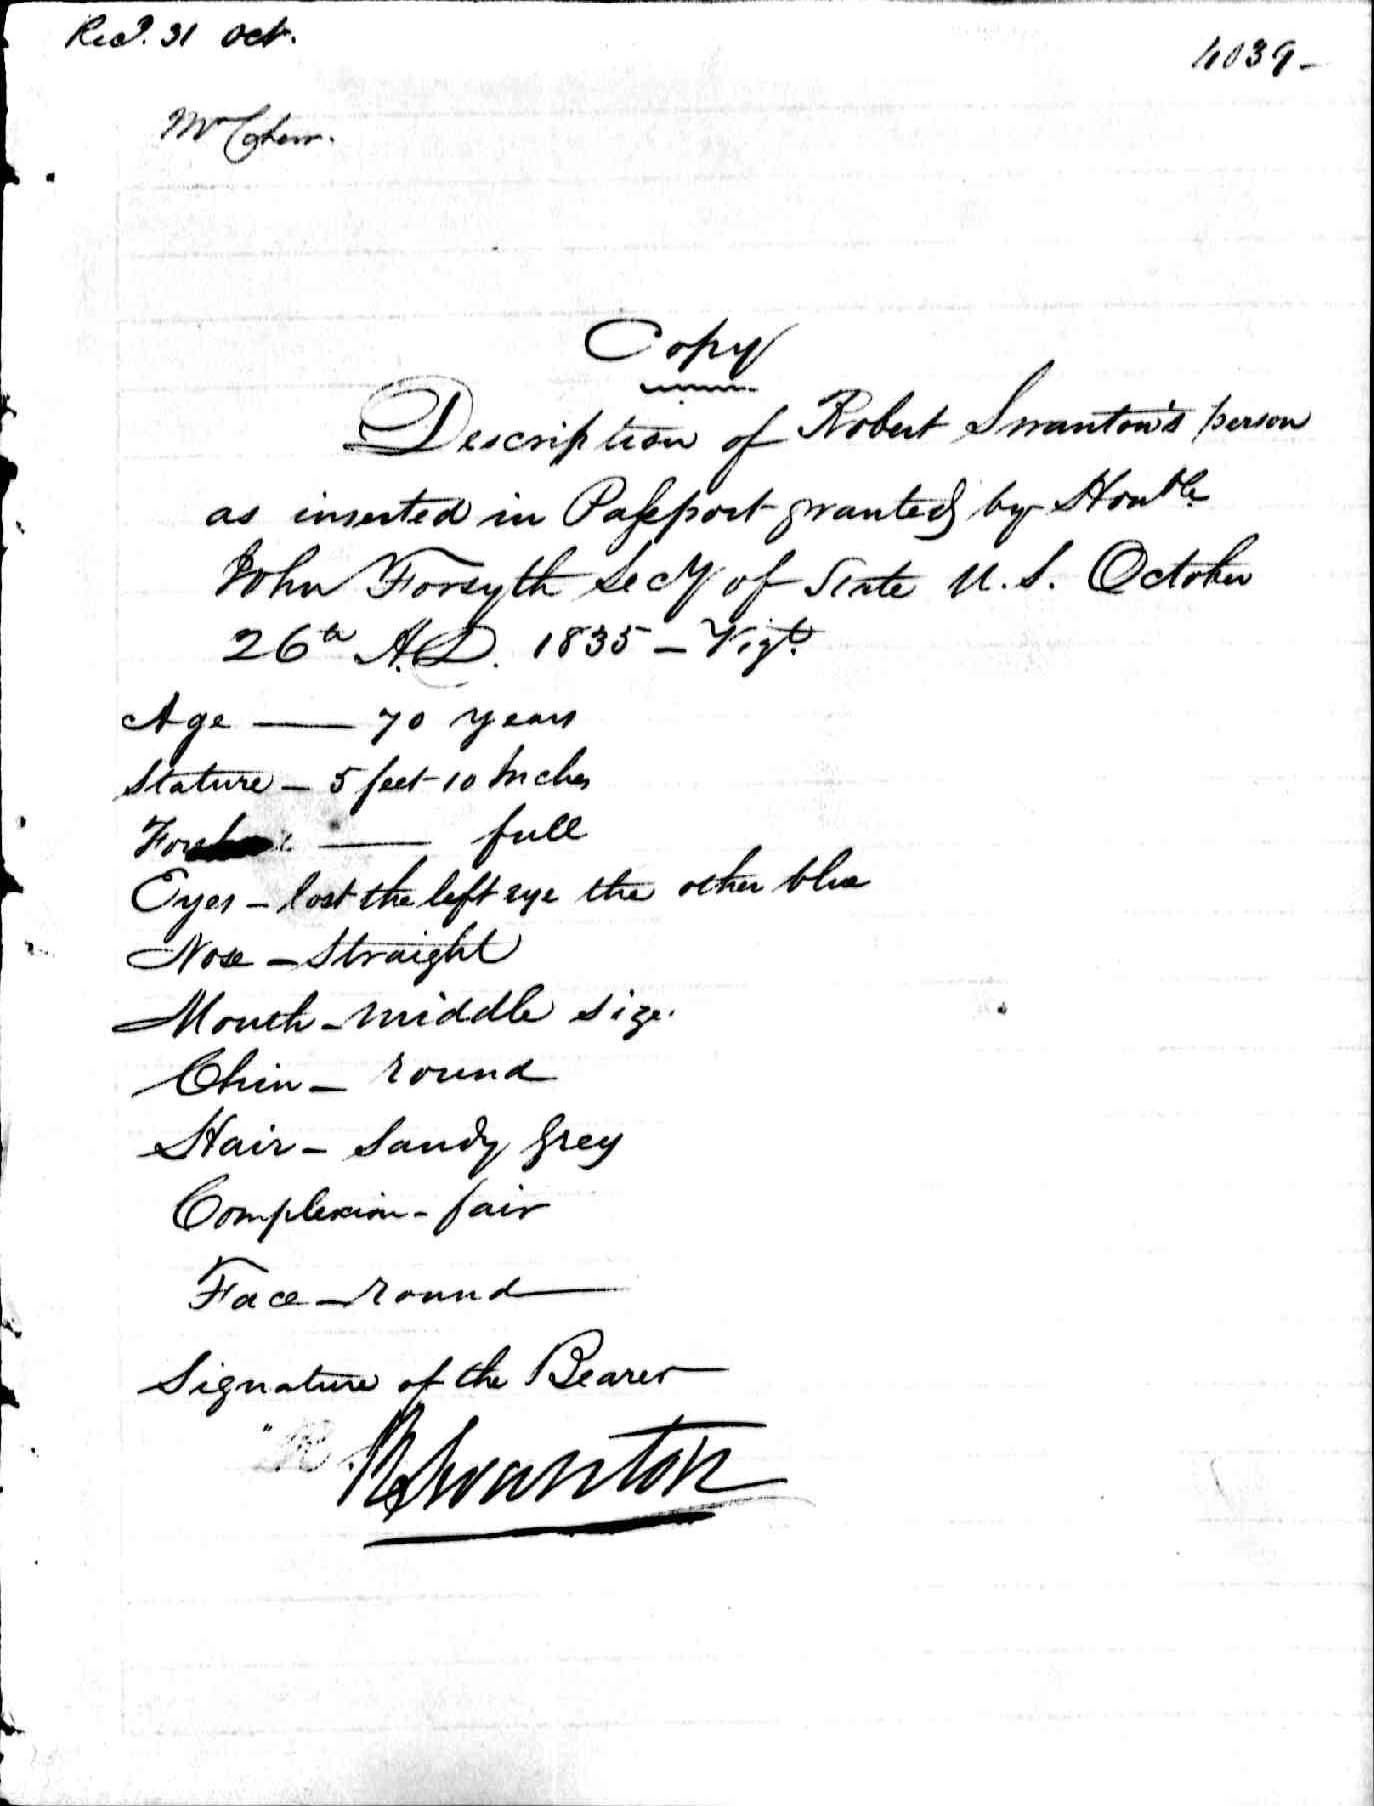 Recd. 31 Oct.
4039-
Mr
Copy
Description of Robert Swanton's person
as inserted in Passport granted by Honble
John Forsyth Secy of State U.S. October
26th A.D. 1835 - Vizt.
Age — 70 years
Stature - 5 feet 10 Inches
— full
Eyes - lost the left eye the other blue
Nose - Straight
Mouth - middle size.
Chin - round
Hair - Sandy Grey
Complexion - fair
Face - round
Signature of the Bearer
R Swanton